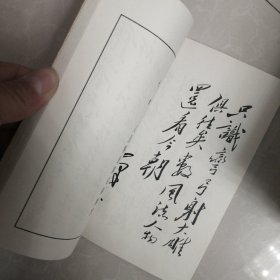 只識彎弓射大雕
俱往矣數風流人物
還看今朝